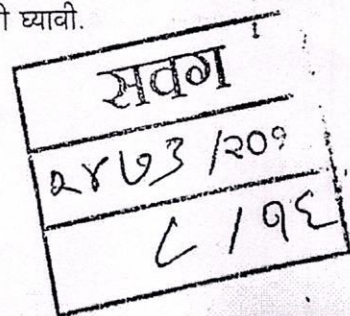 घ्यावी.
सवग
२४७३ /२०१
८ / १६